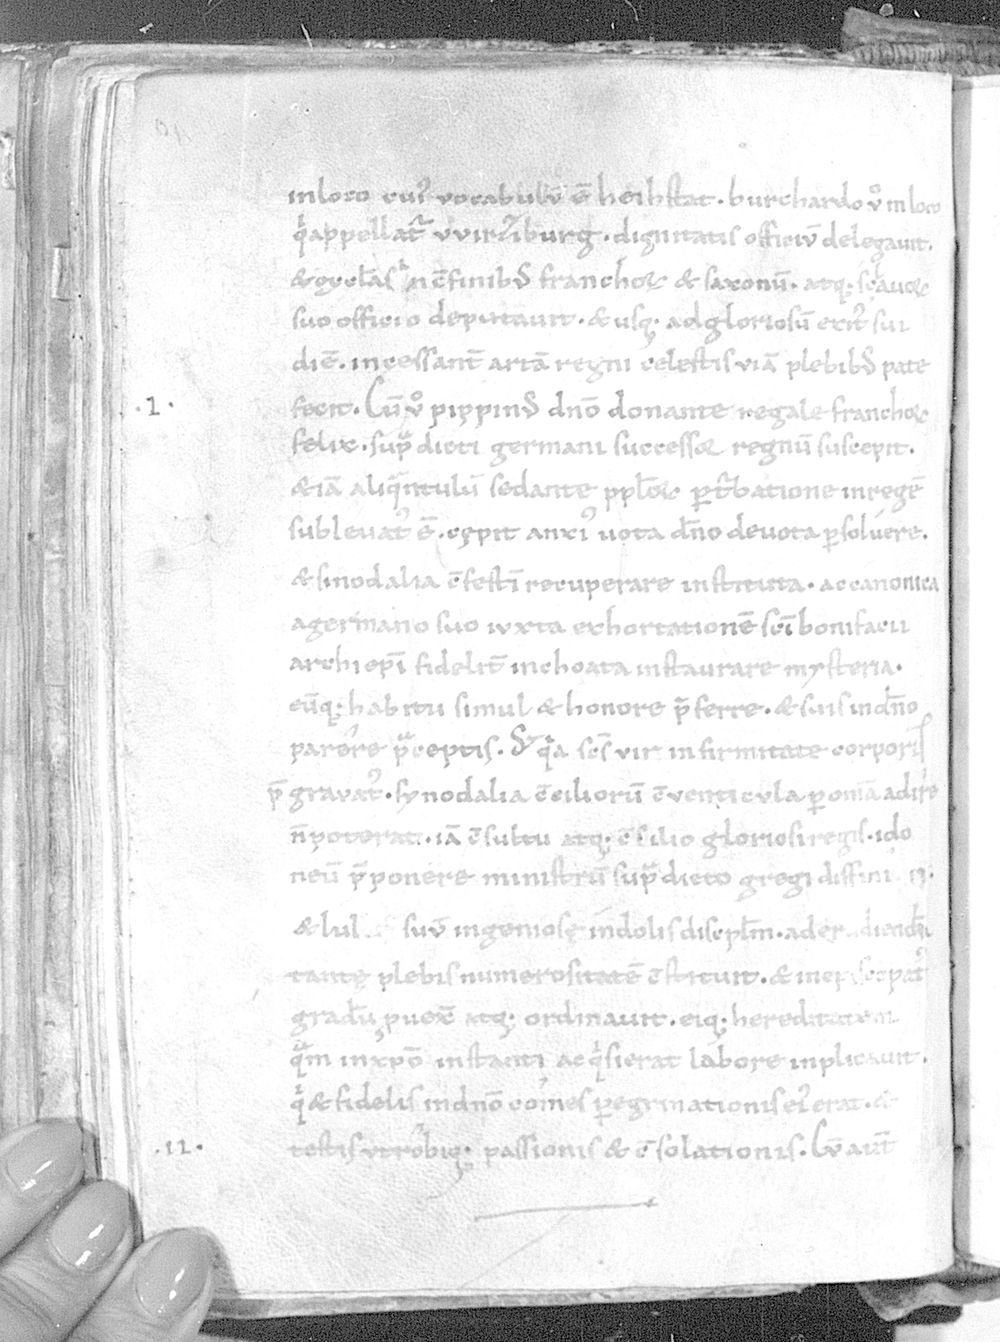 in loco cui' vocabulū ē heihstat. burchardo v° in loco
q'appellat̄ vvirziburg. dignitatis officiū delegavit.
& in c̄finib; franchoꝝ & saxonū. atq; sclauoꝝ
suo officio deputavit. & usq; ad gloriosū exit' sui
diē. incessant̄ artā regni celestis viā plebib; pate
.1. fecit. Cū v° pippin' dn̄o donante regale franchoꝝ
felix. sup̄ dicti germani successoꝝ regnū suscepit.
& iā aliq̄ntulū sedante pplōꝝ p̱t̄batione in regē
sublevat' ē. cępit anxi' uota dn̄o devota p̱solvere.
& sinodalia c̄festī recuperare instituta. ac canonica
a germano suo iuxta exhortationē sc̄i bonifacii
archiepī fidelit̄ inchoata instaurare mysteria.
eūq; habitu simul & honore p̄ferre. & suis in dn̄o
parere p̄ceptis. S; q'a sc̄s vir infirmitate corporis
p̄gravat'. synodalia c̄ciliorū c̄venticula p̱ om̄ia adire
n̄ poterat. iā c̄sultu atq; c̄silio gloriosi regis. ido
neū p̄ponere ministrū sup̄dicto gregi diffini
& lul suū ingeniosę indolis discipl̄m. ad erudiendā
tantę plebis numerositatē c̄stituit. & in episcopat'
gradū p̱vex̄ atq; ordinavit. eiq; hereditatem
q̄m in xp̄o instanti acq'sierat labore inplicavit.
q' & fidelis in dn̄o comes p̱egrinationis ei' erat. &
.11. testis utrobiq; passionis & c̄solationis. Cū aut̄